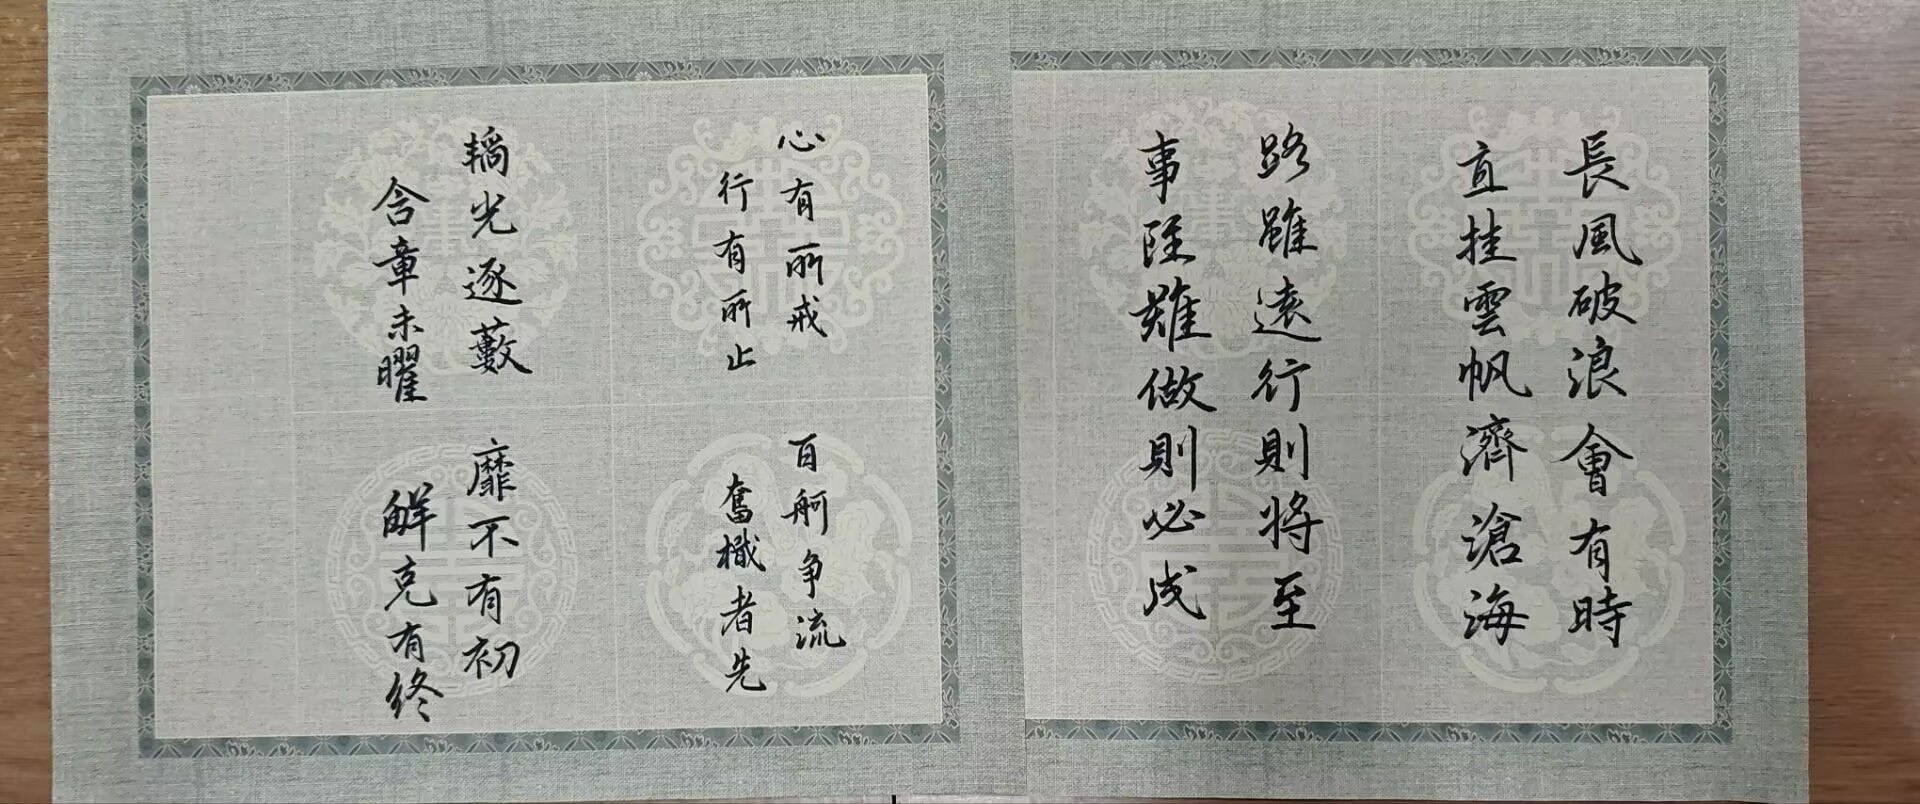 長風破浪會有時
直挂雲帆濟滄海
路雖遠行則将至
事雖難做則必成
心有所戒
行有所止
百舸争流
奮檝者先
韜光逐藪
含章未曜
靡不有初
鮮克有終